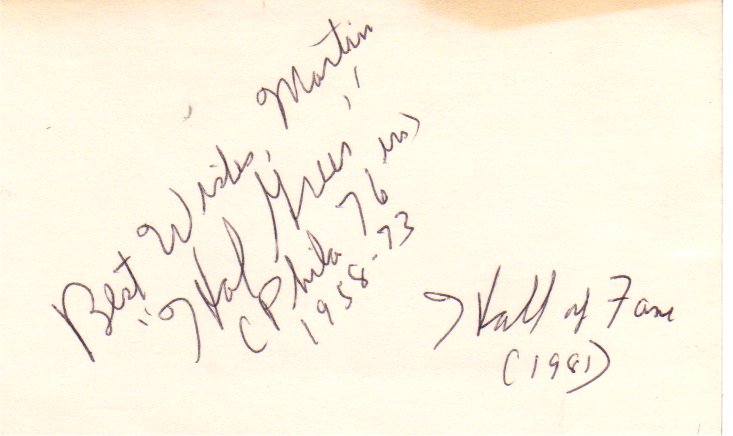 Best Wishes, Martin
"Hal Greer"
(Phila 76 ers)
1958-73
Hall of Fame
(1981)